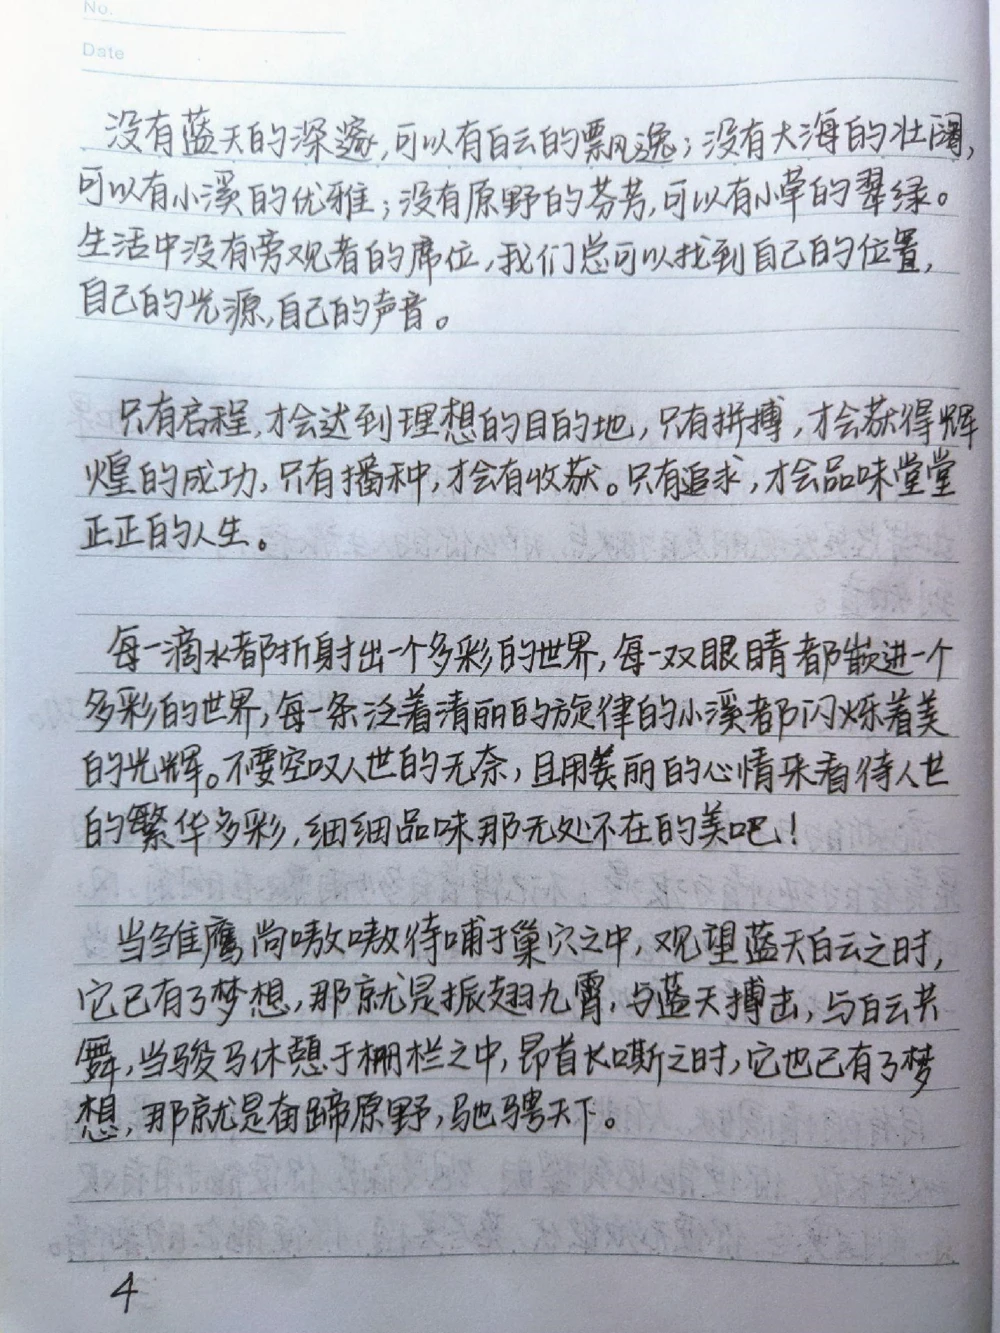 No.
Date
没有蓝天的深邃,可以有白云的飘逸;没有大海的壮阔,
可以有小溪的优雅;没有原野的芬芳,可以有小草的翠绿。
生活中没有旁观者的席位,我们总可以找到自己的位置,
自己的光源,自己的声音。
只有启程,才会达到理想的目的地,只有拼搏,才会获得辉
煌的成功,只有播种,才会有收获。只有追求,才会品味堂堂
正正的人生。
每一滴水都折射出一个多彩的世界,每一双眼睛都嵌进一个
多彩的世界,每一条泛着清丽的旋律的小溪都闪烁着美
的光辉。不要空叹人世的无奈,且用美丽的心情来看待人世
的繁华多彩,细细品味那无处不在的美吧!
当雏鹰尚嗷嗷待哺于巢穴之中,观望蓝天白云之时,
它已有了梦想,那就是振翅九霄,与蓝天搏击,与白云共
舞,当骏马休憩于栅栏之中,昂首长嘶之时,它也已有了梦
想,那就是奋蹄原野,驰骋天下。
4